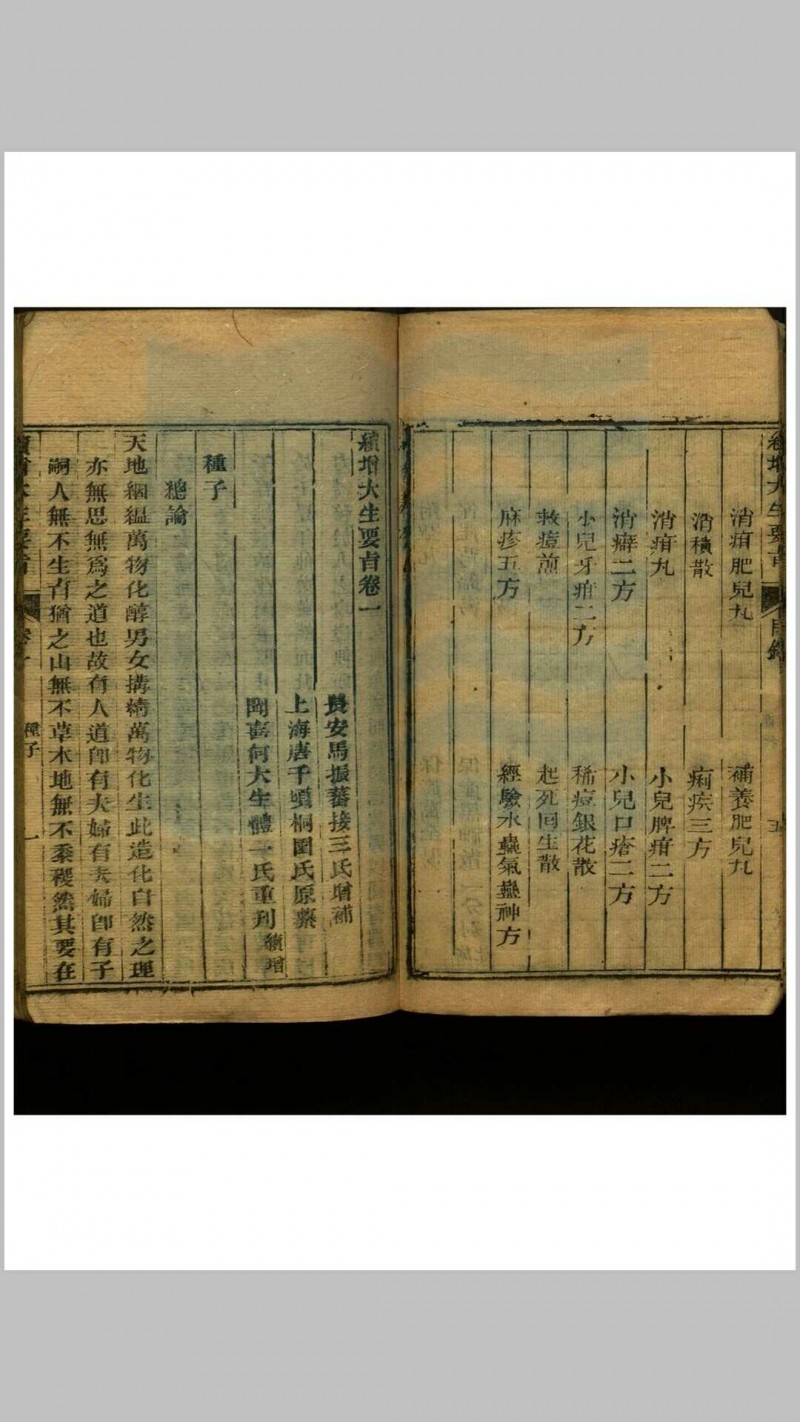 續增大生要旨
目錄
消疳肥兒丸
補養肥兒丸
消積散
痢疾三方
消疳丸
小兒脾疳二方
消癖二方
小兒口瘡二方
小兒牙疳二方
稀痘銀花散
救痘煎
起死回生散
麻疹五方
經驗水蠱氣蠱神方
續增大生要旨卷一
長安馬振蕃接三氏增補
上海唐千頃桐園氏原纂
閿喜何大生體一氏重刋續增
種子
總論
天地絪緼萬物化醇男女搆精萬物化生此造化自然之理
亦無思無爲之道也故有人道卽有夫婦有夫婦卽有子
嗣人無不生育猶之山無不草木地無不黍稷然其要在
續增大生要旨
卷一
種子
一